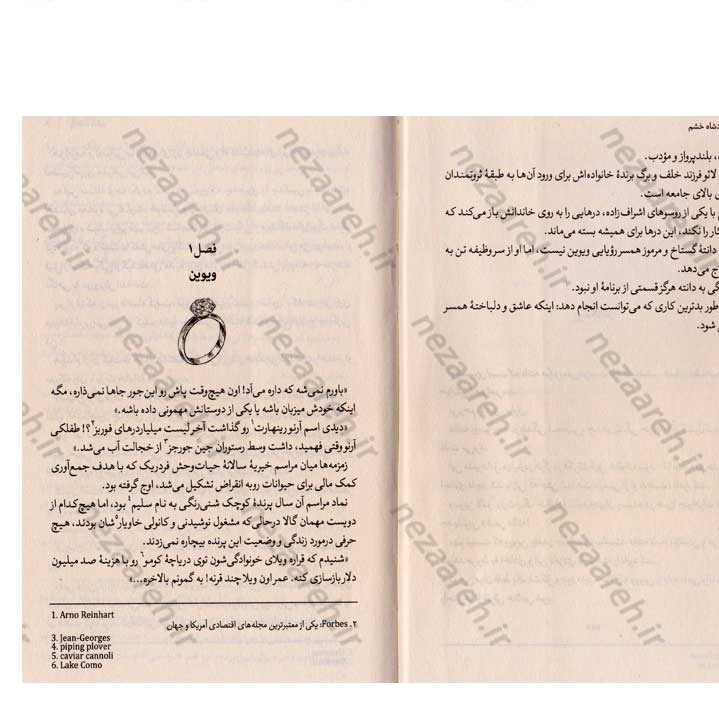 دشاه خشم
، بلندپرواز و مؤدب.
لائو فرزند خلف و برگ برندهٔ خانواده‌اش برای ورود آن‌ها به طبقهٔ ثروتمندان
ی بالای جامعه است.
با یکی از روسوهای اشراف‌زاده، درهایی را به روی خاندانش باز می‌کند که
کار را نکند، این درها برای همیشه بسته می‌ماند.
دانتهٔ گستاخ و مرموز همسر رؤیایی ویوین نیست، اما او از سر وظیفه تن به
ج می‌دهد.
گی به دانته هرگز قسمتی از برنامهٔ او نبود.
طور بدترین کاری که می‌توانست انجام دهد: اینکه عاشق و دلباختهٔ همسر
شود.
فصل ۱
ویوین
«باورم نمی‌شه که داره می‌آد! اون هیچ‌وقت پاش رو این‌جور جاها نمی‌ذاره، مگه
اینکه خودش میزبان باشه یا یکی از دوستانش مهمونی داده باشه.»
«دیدی اسم آرنو رینهارت۱ رو گذاشت آخر لیست میلیاردرهای فوربز۲؟! طفلکی
آرنو وقتی فهمید، داشت وسط رستوران چین جورجز۳ از خجالت آب می‌شد.»
زمزمه‌ها میان مراسم خیریهٔ سالانهٔ حیات‌وحش فردریک که با هدف جمع‌آوری
کمک مالی برای حیوانات رو‌به انقراض تشکیل می‌شد، اوج گرفته بود.
نماد مراسم آن سال پرندهٔ کوچک شنی‌رنگی به نام سلیم۴ بود، اما هیچ‌کدام از
دویست مهمان گالا درحالی‌که مشغول نوشیدنی و کانولی خاویار۵شان بودند، هیچ
حرفی درمورد زندگی و وضعیت این پرنده بیچاره نمی‌زدند.
«شنیدم که قراره ویلای خونوادگی‌شون توی دریاچهٔ کومو۶ رو با هزینهٔ صد میلیون
دلار بازسازی کنه. عمر اون ویلا چند قرنه! به گمونم بالاخره...»
1. Arno Reinhart
۲. Forbes: یکی از معتبرترین مجله‌های اقتصادی آمریکا و جهان
3. Jean-Georges
4. piping plover
5. caviar cannoli
6. Lake Como
nezaareh.ir
nezaareh.ir
nezaareh.ir
nezaareh.ir
nezaareh.ir
nezaareh.ir
nezaareh.ir
nezaareh.ir